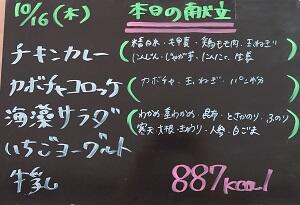 10/16(木) 本日の献立
チキンカレー
(精白米・七分づき・鶏もも肉・玉ねぎ
にんじん・じゃが芋・にんにく・生姜)
カボチャコロッケ
(カボチャ・玉ねぎ・パン粉)
海藻サラダ
(わかめ・茎わかめ・昆布・とさかのり・ふのり
寒天・大根・きゅうり・人参・白ごま)
いちごヨーグルト
牛乳
887kcal